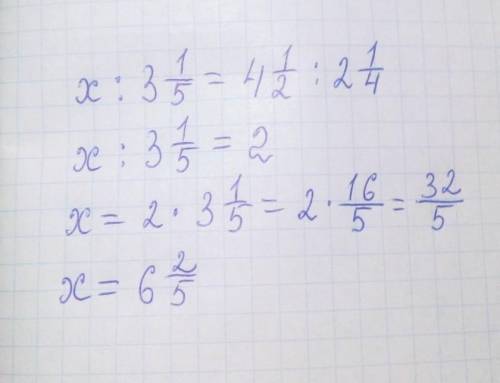 x : 3 1/5 = 4 1/2 : 2 1/4
x : 3 1/5 = 2
x = 2 · 3 1/5 = 2 · 16/5 = 32/5
x = 6 2/5